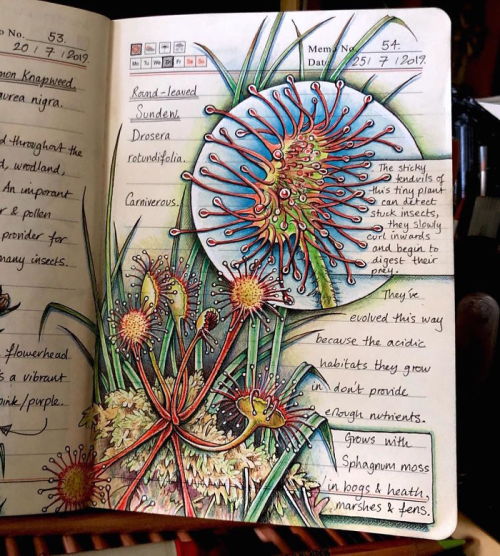 No. 53.
20 / 7 / 2019.
Knapweed.
nigra.
throughout the
woodland,
An imporant
& pollen
provider for
many insects.
flowerhead
a vibrant
pink/purple.
Mo Tu We Th Fr Sa Su
Memo No. 54.
Date 25 / 7 / 2019.
Round-leaved
Sundew.
Drosera
rotundifolia.
Carniverous.
The sticky
tendrils of
this tiny plant
can detect
stuck insects,
they slowly
curl inwards
and begin to
digest their
prey.
They've
evolved this way
because the acidic
habitats they grow
in don't provide
enough nutrients.
Grows with
Sphagnum moss
in bogs & heath,
marshes & fens.